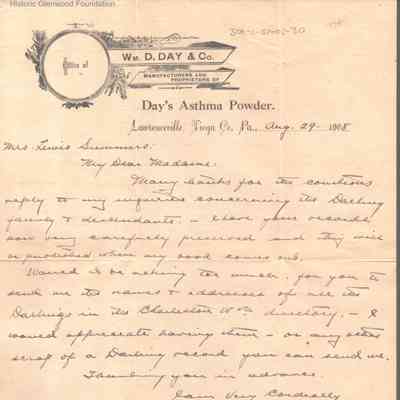 Historic Glenwood Foundation
Office of
WM. D. DAY & CO.
MANUFACTURERS AND
PROPRIETORS OF
Day's Asthma Powder.
Lawrenceville, Tioga Co. Pa., Aug. 29- 1908
Mrs Lewis Summers.
My Dear Madame:
Many thanks for the courteous
reply to my inquiries concerning the Darling
family & descendants. - I have your records
now very carefully preserved and they will
be published when my book comes out.
Would it be asking too much, for you to
send me the names & addresses of all the
Darlings in the Charleston W Va directory. - I
would appreciate having them - or any other
scrap of a Darling record you can send me.
Thanking you in advance.
I am Very Cordially